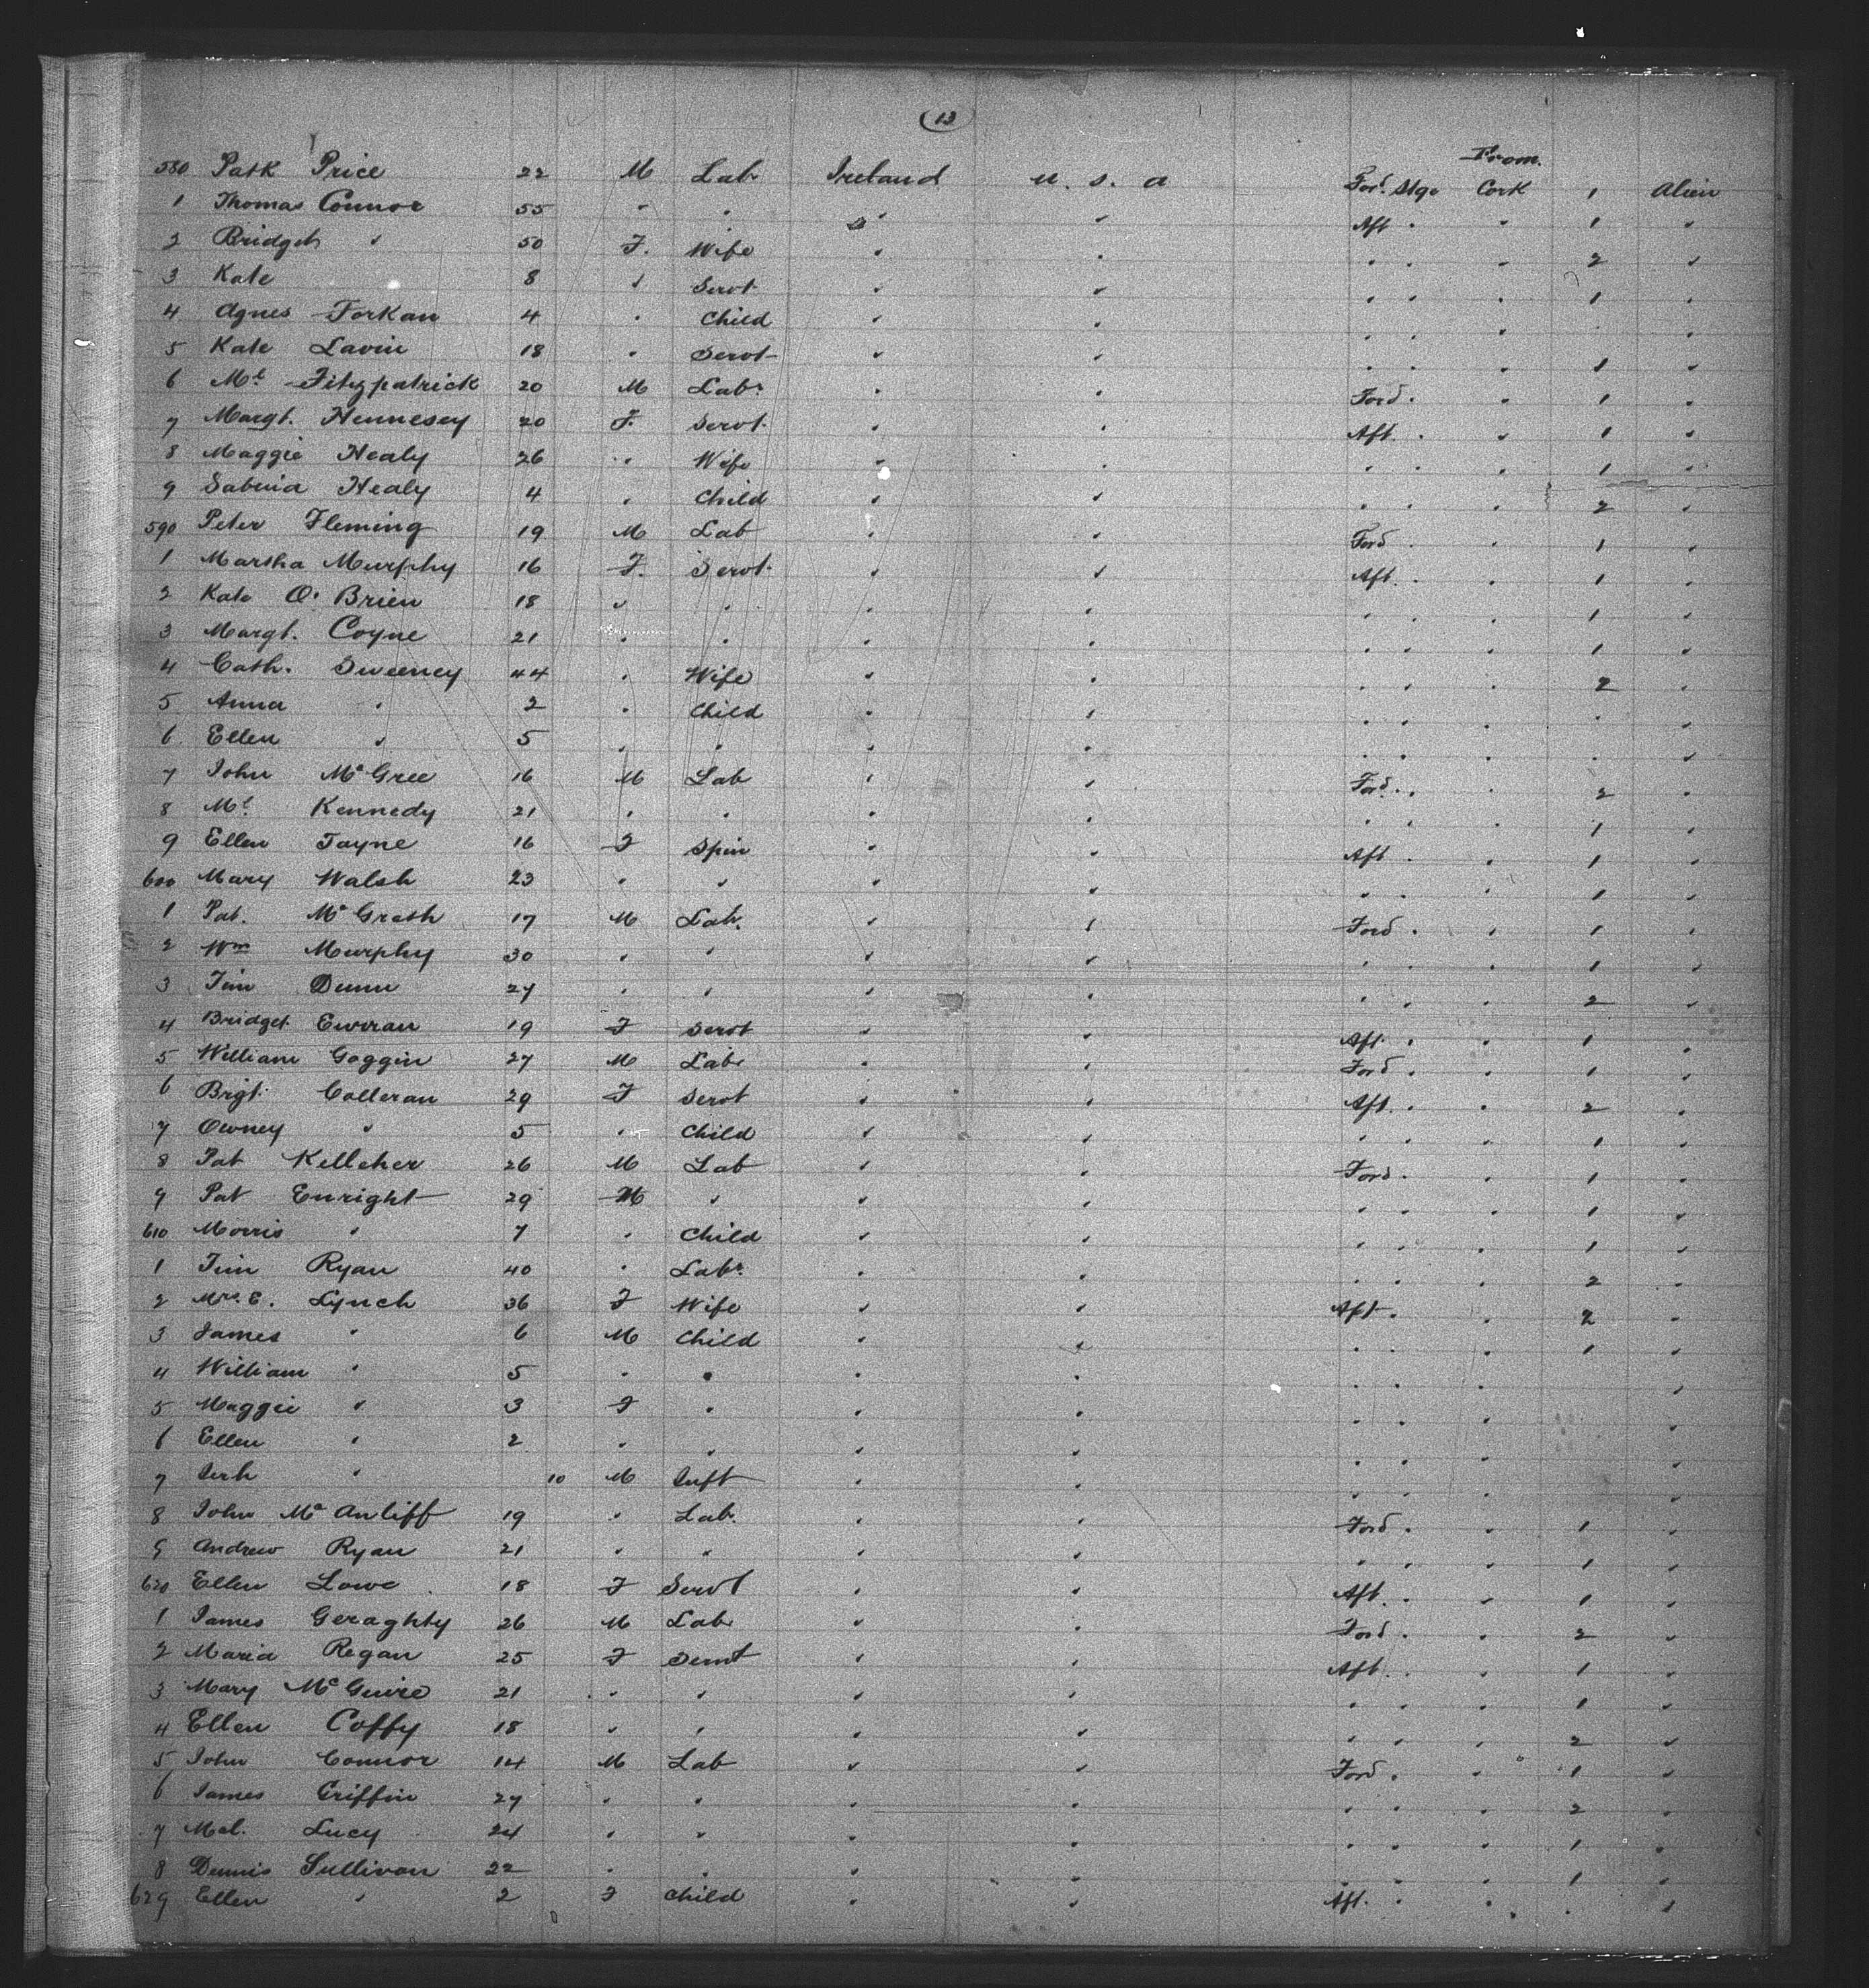 (13)
From.
580 Patk Price 22 M Lab Ireland U. S. A Ford. Stge Cork 1 Alien
1 Thomas Connor 55 " " " " Aft " " 1 "
2 Bridget " 50 F. Wife " " " " " 2 "
3 Kate 8 " Servt " " " " " 1 "
4 Agnes Forkan 4 " Child " " " " " " "
5 Kate Lavin 18 " Servt " " " " " 1 "
6 Ml Fitzpatrick 20 M Labr " " Ford " " 1 "
7 Margt. Hennesey 20 F. Servt " " Aft. " " 1 "
8 Maggie Healy 26 " Wife " " " " " 1 "
9 Sabina Healy 4 " Child " " " " " 2 "
590 Peter Fleming 19 M Lab " " Ford " " 1 "
1 Martha Murphy 16 F. Servt. " " Aft. " " 1 "
2 Kate O'Brien 18 " " " " " " " 1 "
3 Margt. Coyne 21 " " " " " " " 1 "
4 Cath. Sweeney 44 " Wife " " " " " 2 "
5 Anna " 2 " Child " " " " " " "
6 Ellen " 5 " " " " " " " " "
7 John McGree 16 M Lab " " Ford. " " 2 "
8 Ml Kennedy 21 " " " " " " " 1 "
9 Ellen Jayne 16 F Spin " " Aft " " 1 "
600 Mary Walsh 23 " " " " " " " 1 "
1 Pat. McGrath 17 M Lab. " " Ford " " 1 "
2 Wm Murphy 30 " " " " " " " 1 "
3 Tim Dunn 27 " " " " " " " 2 "
4 Bridget Curran 19 F Servt " " Aft. " " 1 "
5 William Goggin 27 M Lab " " Ford " " 1 "
6 Brgt. Colleran 29 F Servt " " Aft. " " 2 "
7 Owney " 5 " Child " " " " " 1 "
8 Pat Kelleher 26 M Lab " " Ford. " " 1 "
9 Pat Enright 29 M " " " " " " 1 "
610 Morris " 7 " Child " " " " " 1 "
1 Tim Ryan 40 " Labr " " " " " 2 "
2 Mrs. E. Lynch 36 F Wife " " Aft " " 2 "
3 James " 6 M Child " " " " " 1 "
4 William " 5 " " " " " " " "
5 Maggie " 3 F " " " " " " "
6 Ellen " 2 " " " " " " " "
7 Jerh " 10 M Inft " " " " " "
8 John McAuliff 19 " Lab. " " Ford " " 1 "
9 Andrew Ryan 21 " " " " " " " 1 "
620 Ellen Lowe 18 F Servt " " Aft. " " 1 "
1 James Geraghty 26 M Lab " " Ford " " 2 "
2 Maria Regan 25 F Servt " " Aft. " " 1 "
3 Mary McGuire 21 " " " " " " " 1 "
4 Ellen Coffy 18 " " " " " " " 2 "
5 John Connor 14 M Lab " " Ford " " 1 "
6 James Griffin 27 " " " " " " " 2 "
7 Mcl. Lucy 24 " " " " " " " 1 "
8 Dennis Sullivan 22 " " " " " " " 1 "
629 Ellen " 2 F Child " " Aft. " " " "